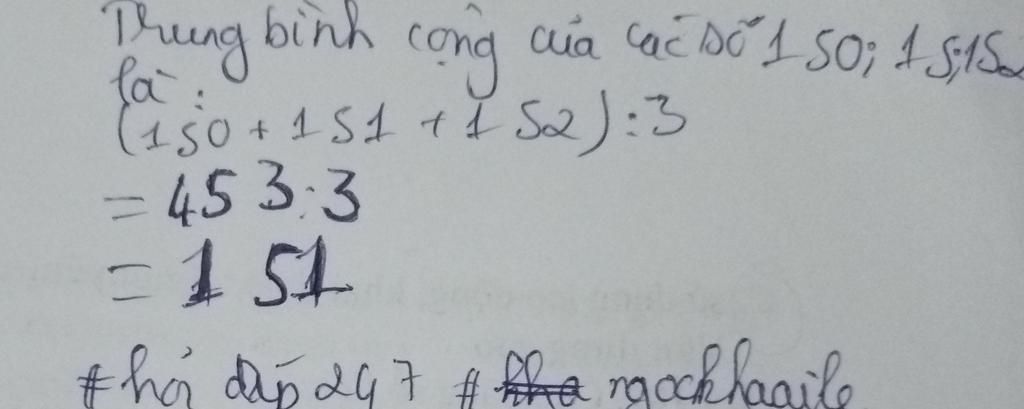 Trung bình cộng của các số 150; 15;152
là:
(150 + 151 + 152) : 3
= 453:3
= 151
#hỏi đáp 247 # ngockhaaile